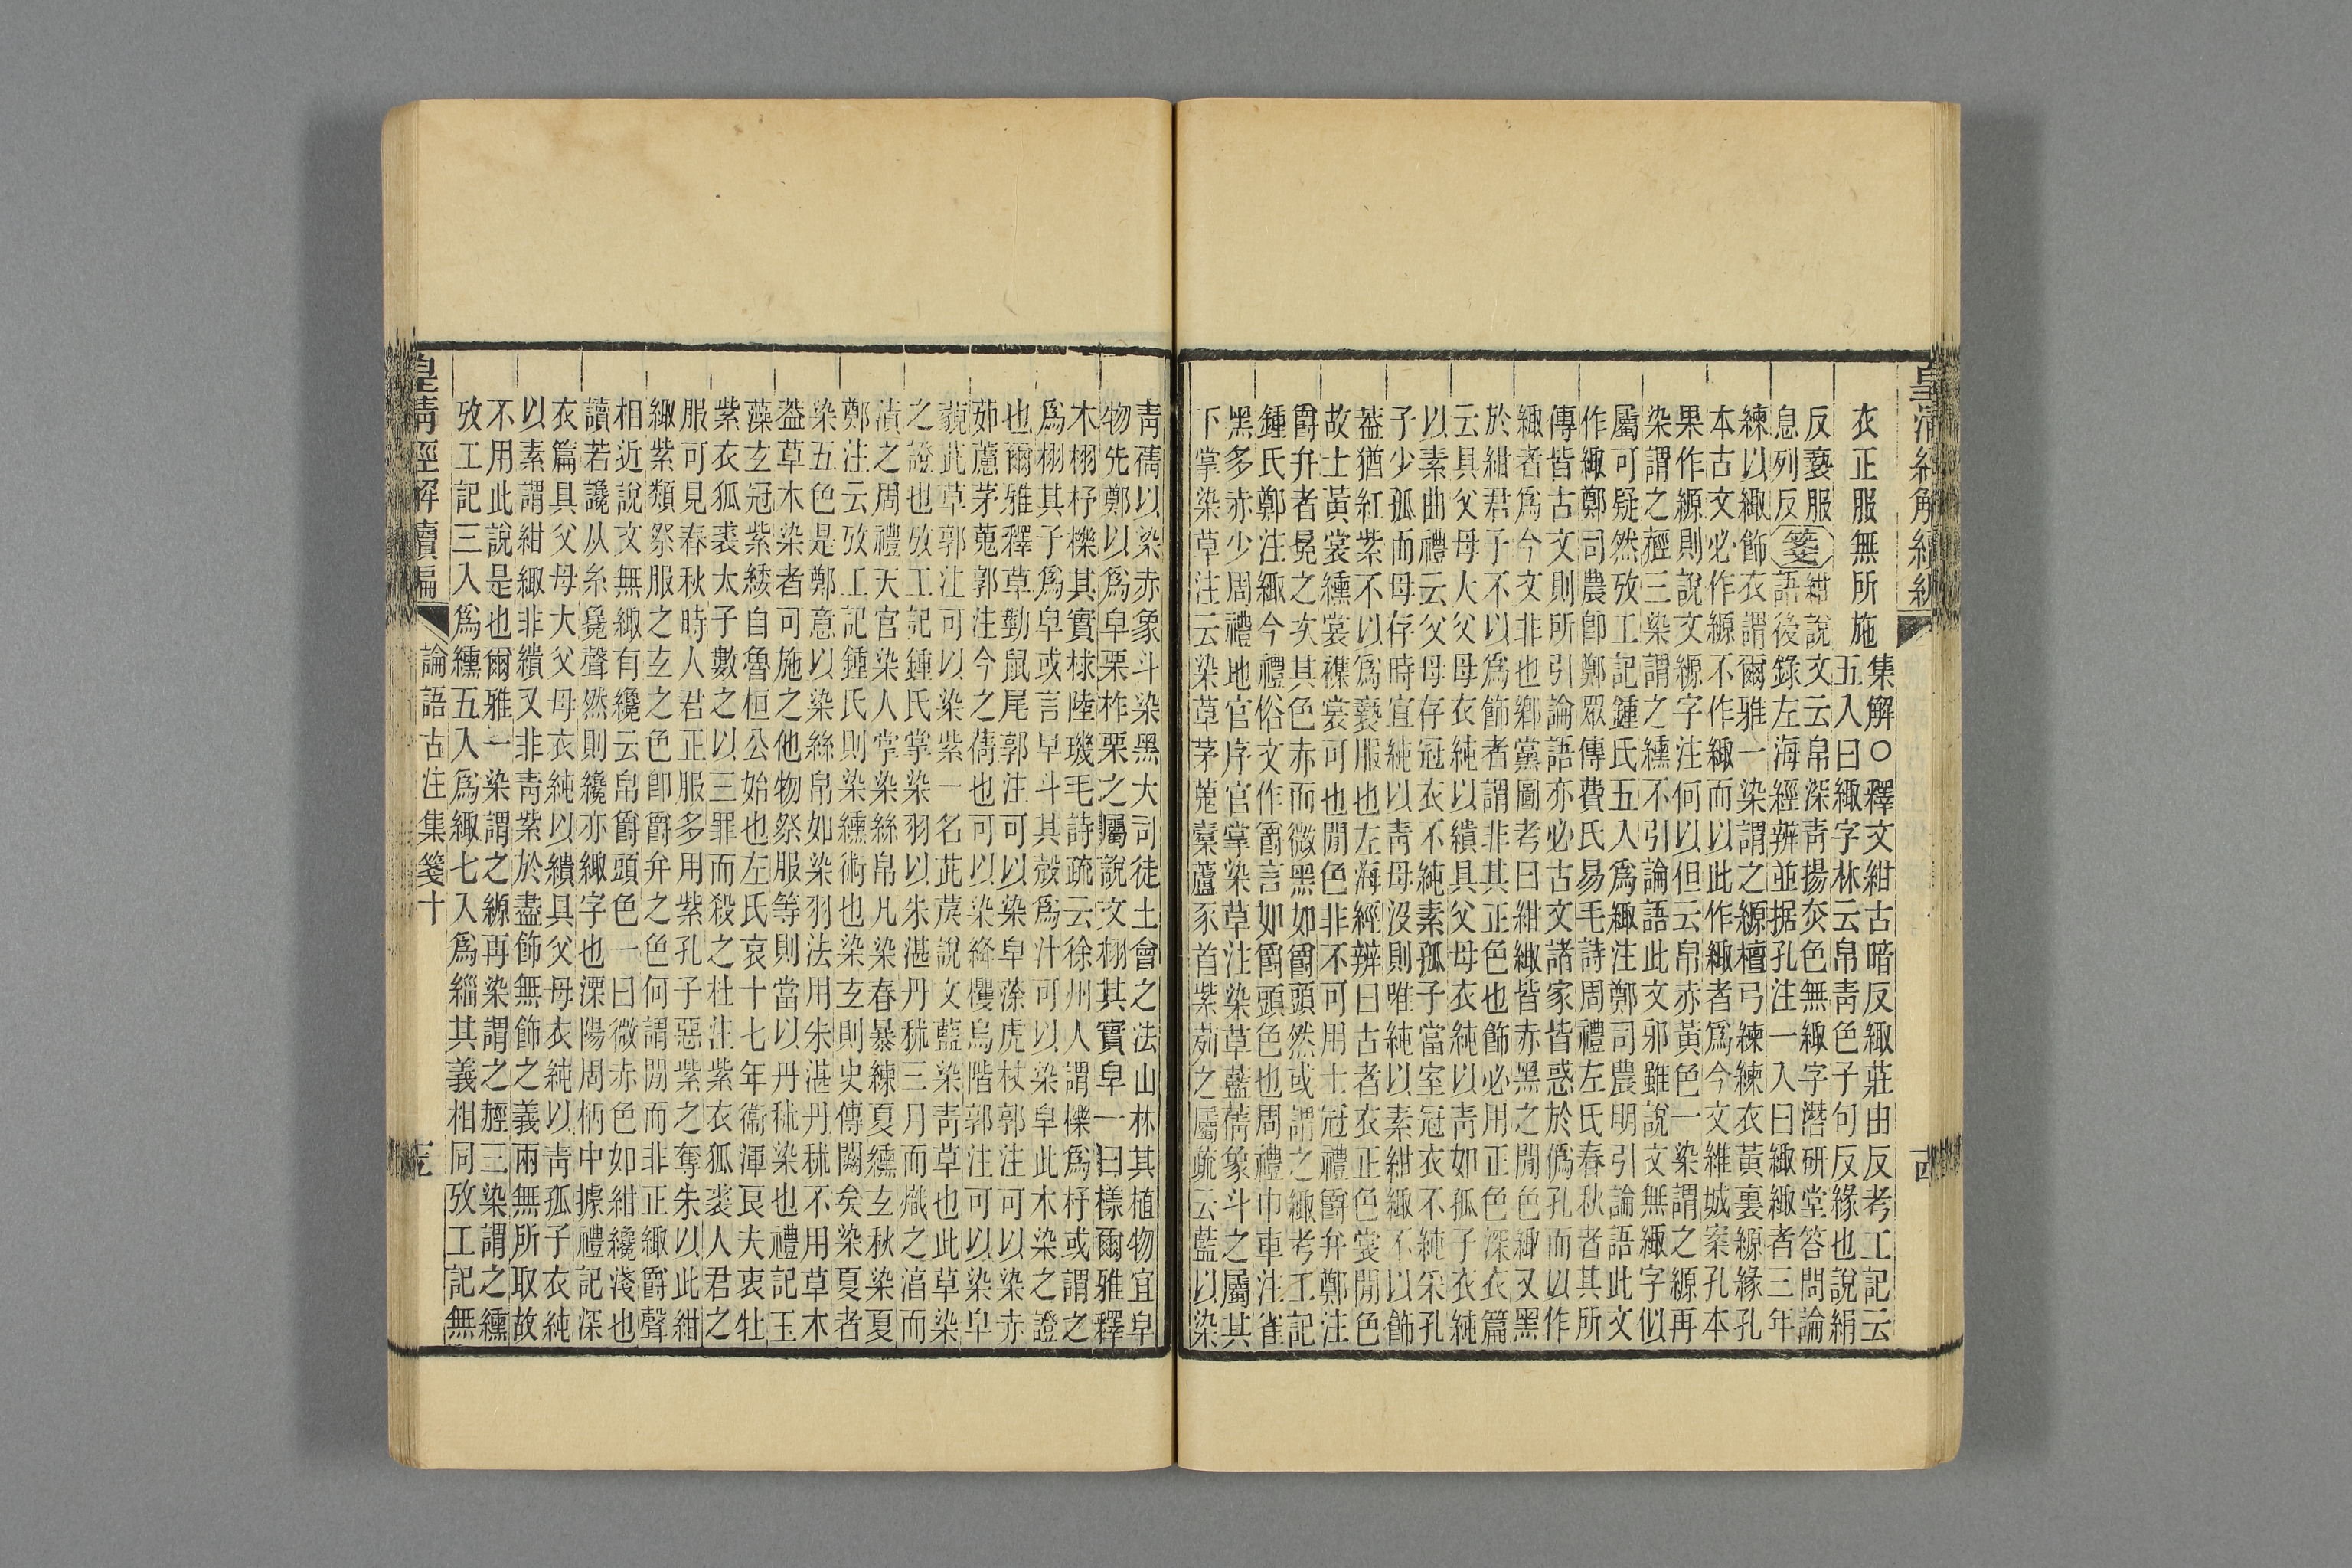 皇清經解續編
衣正服無所施
集解〇釋文紺古暗反緅莊由反考工記云
五入曰緅字林云帛青色子句反緣也說絹
反褻服
息列反
箋
紺說文云帛深青揚赤色無緅字潛研堂答問論
語後錄左海經辨並据孔注一入曰緅緅者三年
練以緅飾衣謂爾雅一染謂之縓檀弓練練衣黃裏縓緣孔
本古文必作縓不作緅而以此作緅者爲今文維城案孔本
果作縓則說文縓字注何以但云帛赤黃色一染謂之縓再
染謂之赬三染謂之纁不引論語此文邪雖說文無緅字似
屬可疑然攷工記鍾氏五入爲緅注鄭司農明引論語此文
作緅鄭司農卽鄭眾傳費氏易毛詩周禮左氏春秋者其所
傳皆古文則所引論語亦必古文諸家皆惑於僞孔而以作
緅者爲今文非也鄉黨圖考曰紺緅皆赤黑之閒色緅又黑
於紺君子不以爲飾者謂非其正色也飾必用正色深衣篇
云具父母大父母衣純以繢具父母衣純以青如孤子衣純
以素曲禮云父母存冠衣不純素孤子當室冠衣不純采孔
子少孤而母存時宜純以青母沒則唯純以素紺緅不以飾
蓋猶紅紫不以爲褻服也左海經辨曰古者衣正色裳閒色
故士黃裳纁裳襍裳可也閒色非不可用士冠禮爵弁鄭注
爵弁者冕之次其色赤而微黑如爵頭然或謂之緅考工記
鍾氏鄭注緅今禮俗文作爵言如爵頭色也周禮巾車注雀
黑多赤少周禮地官序官掌染草注染草藍蒨象斗之屬其
下掌染草注云染草茅蒐橐蘆豕首紫茢之屬疏云藍以染
青蒨以染赤象斗染黑大司徒土會之法山林其植物宜皁
物先鄭以爲皁栗柞栗之屬說文栩其實皁一曰樣爾雅釋
木栩杼櫟其實梂陸璣毛詩疏云徐州人謂櫟爲杼或謂之
爲栩其子爲皁或言皁斗其殼爲汁可以染皁此木染之證
也爾雅釋草勤鼠尾郭注可以染皁蒤虎杖郭注可以染赤
茹藘茅蒐郭注今之蒨也可以染絳欔烏階郭注可以染皁
藐茈草郭注可以染紫一名茈䓞說文藍染青草也此草染
之證也攷工記鍾氏掌染羽以朱湛丹秫三月而熾之淳而
漬之周禮天官染人掌染絲帛凡染春暴練夏纁玄秋染夏
鄭注云攷工記鍾氏則染纁術也染玄則史傳闕矣染夏者
染五色是鄭意以染絲帛如染羽法用朱湛丹秫不用草木
蓋草木染者可施之他物祭服等則當以丹秫染也禮記玉
藻玄冠紫緌自魯桓公始也左氏哀十七年衞渾良夫衷牡
紫衣狐裘太子數之以三罪而殺之杜注紫衣狐裘人君之
服可見春秋時人君正服多用紫孔子惡紫之奪朱以此紺
緅紫類祭服之玄之色卽爵弁之色何謂閒而非正緅爵聲
相近說文無緅有纔云帛爵頭色一曰微赤色如紺纔淺也
讀若讒从糸毚聲然則纔亦緅字也溧陽周柄中據禮記深
衣篇具父母大父母衣純以繢具父母衣純以青孤子衣純
以素謂紺緅非繢又非青紫於盡飾無飾之義兩無所取故
不用此說是也爾雅一染謂之縓再染謂之赬三染謂之纁
攷工記三入爲纁五入爲緅七入爲緇其義相同攷工記無
皇清經解續編
論語古注集箋十